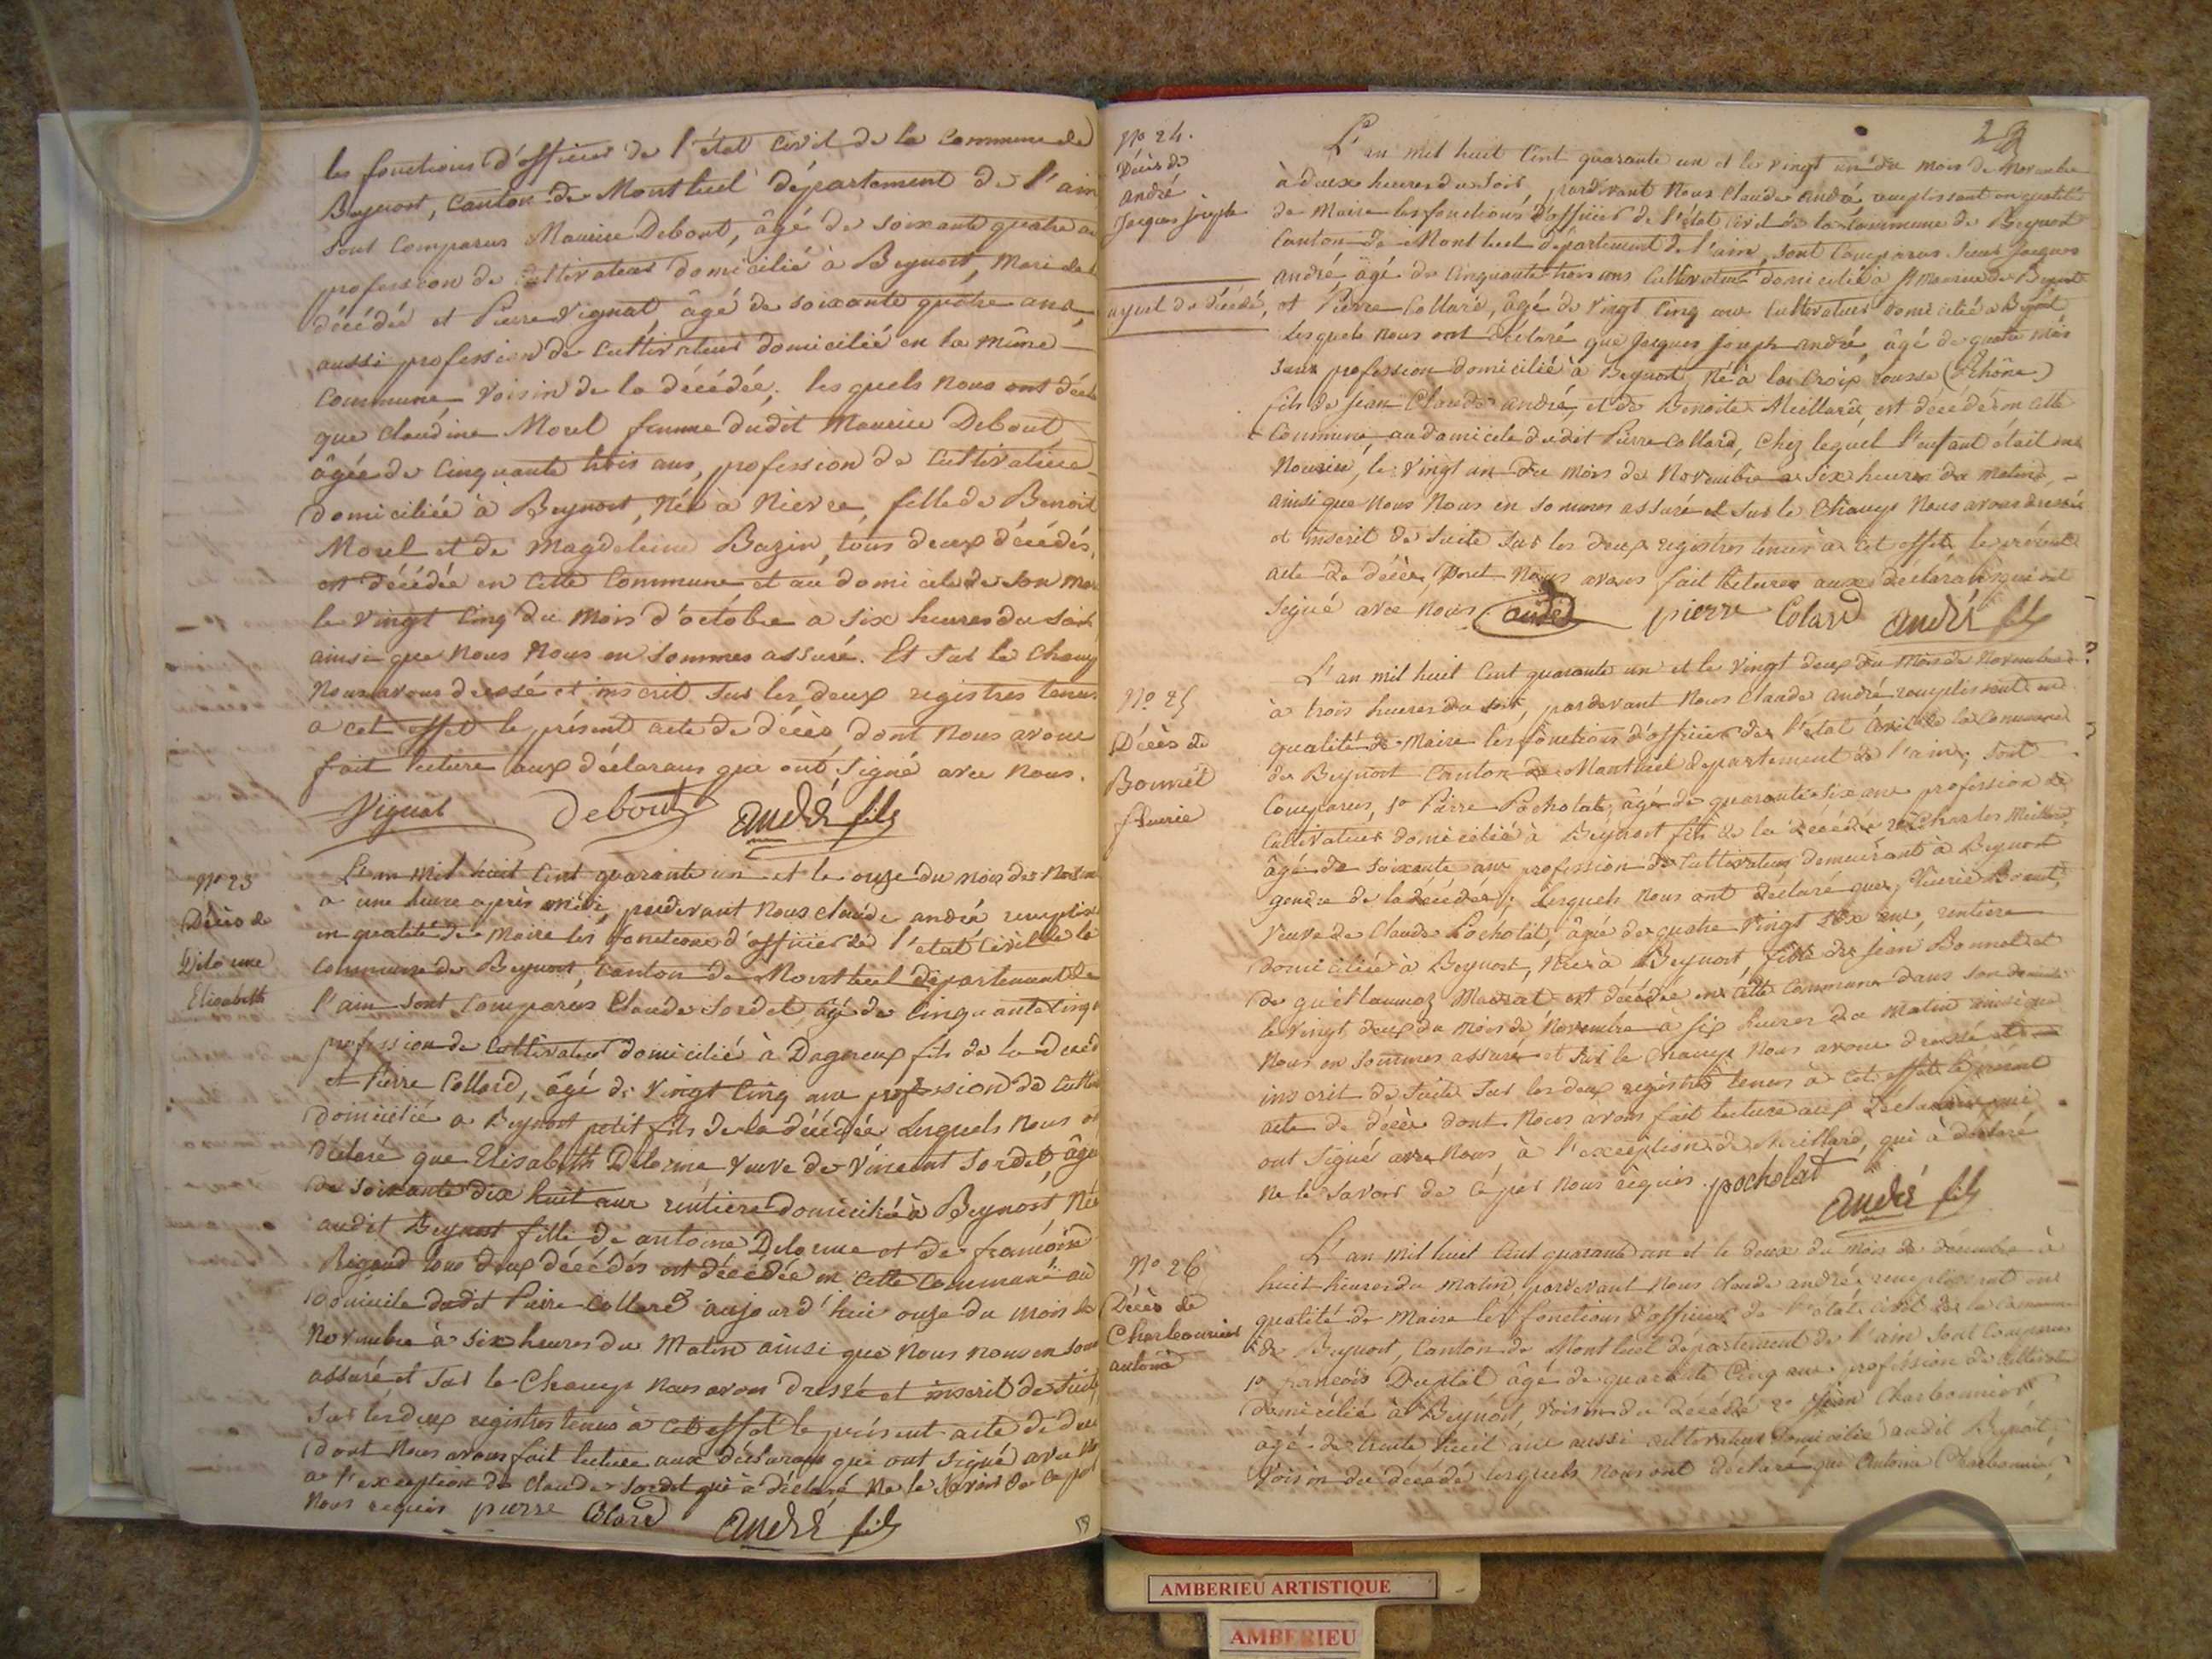 les fonctions d'officier de l'état civil de la commune de
Beynost, canton de Montluel département de l'ain
sont comparus Maurice Debout, âgé de soixante quatre an
profession de cultivateur domicilié à Beynost, Mari de la
décédée et Pierre Vignat âgé de soixante quatre ans,
aussi profession de cultivateur domicilié en la même
commune voisin de la décédée; les quels nous ont décl
que Claudine Morel femme dudit Maurice Debout
âgée de cinquante trois ans, profession de cultivatrice
domiciliée à Beynost, Née à Nievre, fille de Benoit
Morel et de Magdeleine Bazin, tous deux décédés,
est décédée en cette commune et au domicile de son mari
le vingt cinq du mois d'octobre a six heures du soir
ainsi que nous nous en sommes assuré. Et sur le champ
Nous avons dressé et inscrit sur les deux registres tenus
a cet effet le présent acte de décès dont nous avons
fait lecture aux déclarans que ont signé avec nous.
Vignat Debout André fils
N° 23
Décès de
Delorme
Elisabeth
L'an mil huit cent quarante un et le onze du mois de Novem
a une heure après midi, pardevant nous claude andré remplis
en qualité de Maire les fonctions d'officier de l'état civil de la
commune de Beynost, canton de Montluel département de
l'ain sont comparus Claude Sordet âgé de cinquante cinq
profession de cultivateur domicilié à Dagneux fils de la décéd
et Pierre Collard, âgé de vingt cinq ans profession de cultiv
domicilié a Beynost petit fils de la décédée Lesquels nous o
déclaré que Elisabeth Delorme veuve de Vincent Sordet, âgé
de soixante dix huit ans rentière domiciliée à Beynost, Née
audit Beynost fille de antoine Delorme et de françoise
Rigaud tous deux décédés est décédée en cette commune au
domicile dudit Pierre Collard aujourd'hui onze du mois de
Novembre à six heures du Matin ainsi que nous nous en som
assuré et sur le champ nous avons dressé et inscrit de suite
sur les deux registres tenus à cet effet le présent acte de déc
dont nous avons fait lecture aux déclarans qui ont signé avec
a l'exception de Claude Sordet qui a déclaré ne le savoir de ce par
nous requis pierre Colard André fils
23
N° 24.
Décès de
andré
Jacques joseph
L'an mil huit cent quarante un et le vingt un du mois de Novembre
à deux heures du soir, pardevant Nous Claude André remplissant en qualité
de Maire les fonctions d'officier de l'état civil de la commune de Beynost
canton de Montluel département de l'ain, sont comparus Jacques
andré âgé de cinquante trois ans cultivateur domicilié à St Maurice de Beynost
ayeul de décédé, et Pierre Collard, âgé de vingt cinq ans cultivateur domicilié a Beynost
Lesquels nous ont déclaré que Jacques Joseph André, âgé de quatre mois
sans profession domicilié à Beynost, Né à la Croix rousse (Rhône)
fils de jean Claude andré, et de Benoite Meillard, est décédé en cette
commune au domicile dudit Pierre Collard, chez lequel l'enfant était en
Nourrice, le vingt un du mois de Novembre a six heures du matin,
ainsi que nous nous en sommes assuré et sur le champ nous avons dressé
et inscrit de suite sur les deux registres tenus à cet effet, le présent
acte de décès dont nous avons fait lecture aux déclarans qui ont
signé avec nous andré pierre Colard André fils
N° 25
Décès de
Bonnet
fleurie
L'an mil huit cent quarante un et le vingt deux du mois de Novembre
à trois heures du soir, pardevant nous Claude André remplissant en
qualité de Maire les fonctions d'officier de l'état civil de la commune
de Beynost canton de Montluel département de l'ain, sont
comparus, 1° Pierre Pocholat, âgé de quarante six ans profession de
cultivateur domicilié à Beynost fils de la décédée 2° Charles Meillard,
âgé de soixante ans profession de cultivateur demeurant à Beynost
gendre de la décédée; Lesquels nous ont déclaré que fleurie Bonnet,
veuve de Claude Pocholat, âgée de quatre vingt six ans, rentière
domiciliée à Beynost, née à Beynost, fille de jean Bonnet et
de est décédée en cette commune dans son domicile
le vingt deux du mois de Novembre à six heures du matin ainsi que
nous en sommes assuré et sur le champ nous avons dressé et
inscrit de suite sur les deux registres tenus à cet effet le présent
acte de décès dont nous avons fait lecture aux déclarans qui
ont signé avec nous, à l'exception de Meillard, qui à déclaré
ne le savoir de ce par nous requis. pocholat
André fils
N° 26
Décès de
Charbonnier
antoine
L'an mil huit cent quarante un et le deux du mois de décembre à
huit heures du matin, pardevant nous Claude andré remplissant en
qualité de Maire les fonctions d'officier de l'état civil de la commune
de Beynost, canton de Montluel département de l'ain sont comparus
1° françois Duplât âgé de quarante cinq ans profession de cultivat
domicilié à Beynost, voisin du décédé 2° Jean Charbonnier
âgé de trente huit ans aussi cultivateur domicilié audit Beynost,
voisin du décédé lesquels nous ont déclaré que Antoine Charbonnier,
AMBERIEU ARTISTIQUE
AMBERIEU